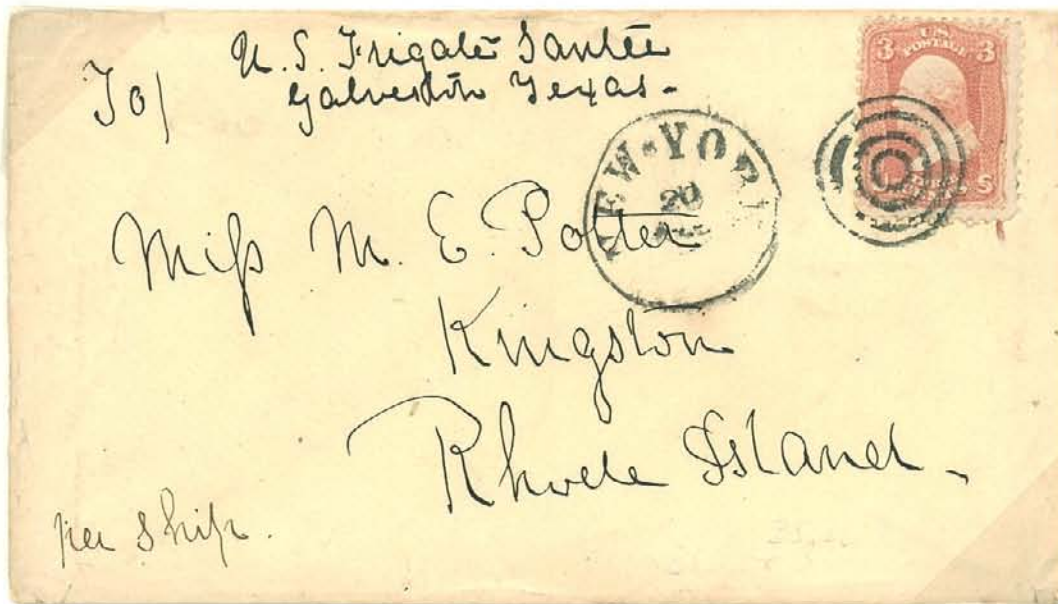 U.S. Frigate Santee
Galveston Texas -
To/
3 U.S. POSTAGE 3
NEW • YORK
20
Miſs M. E. Potter
Kingston
Rhode Island -
per Ship.